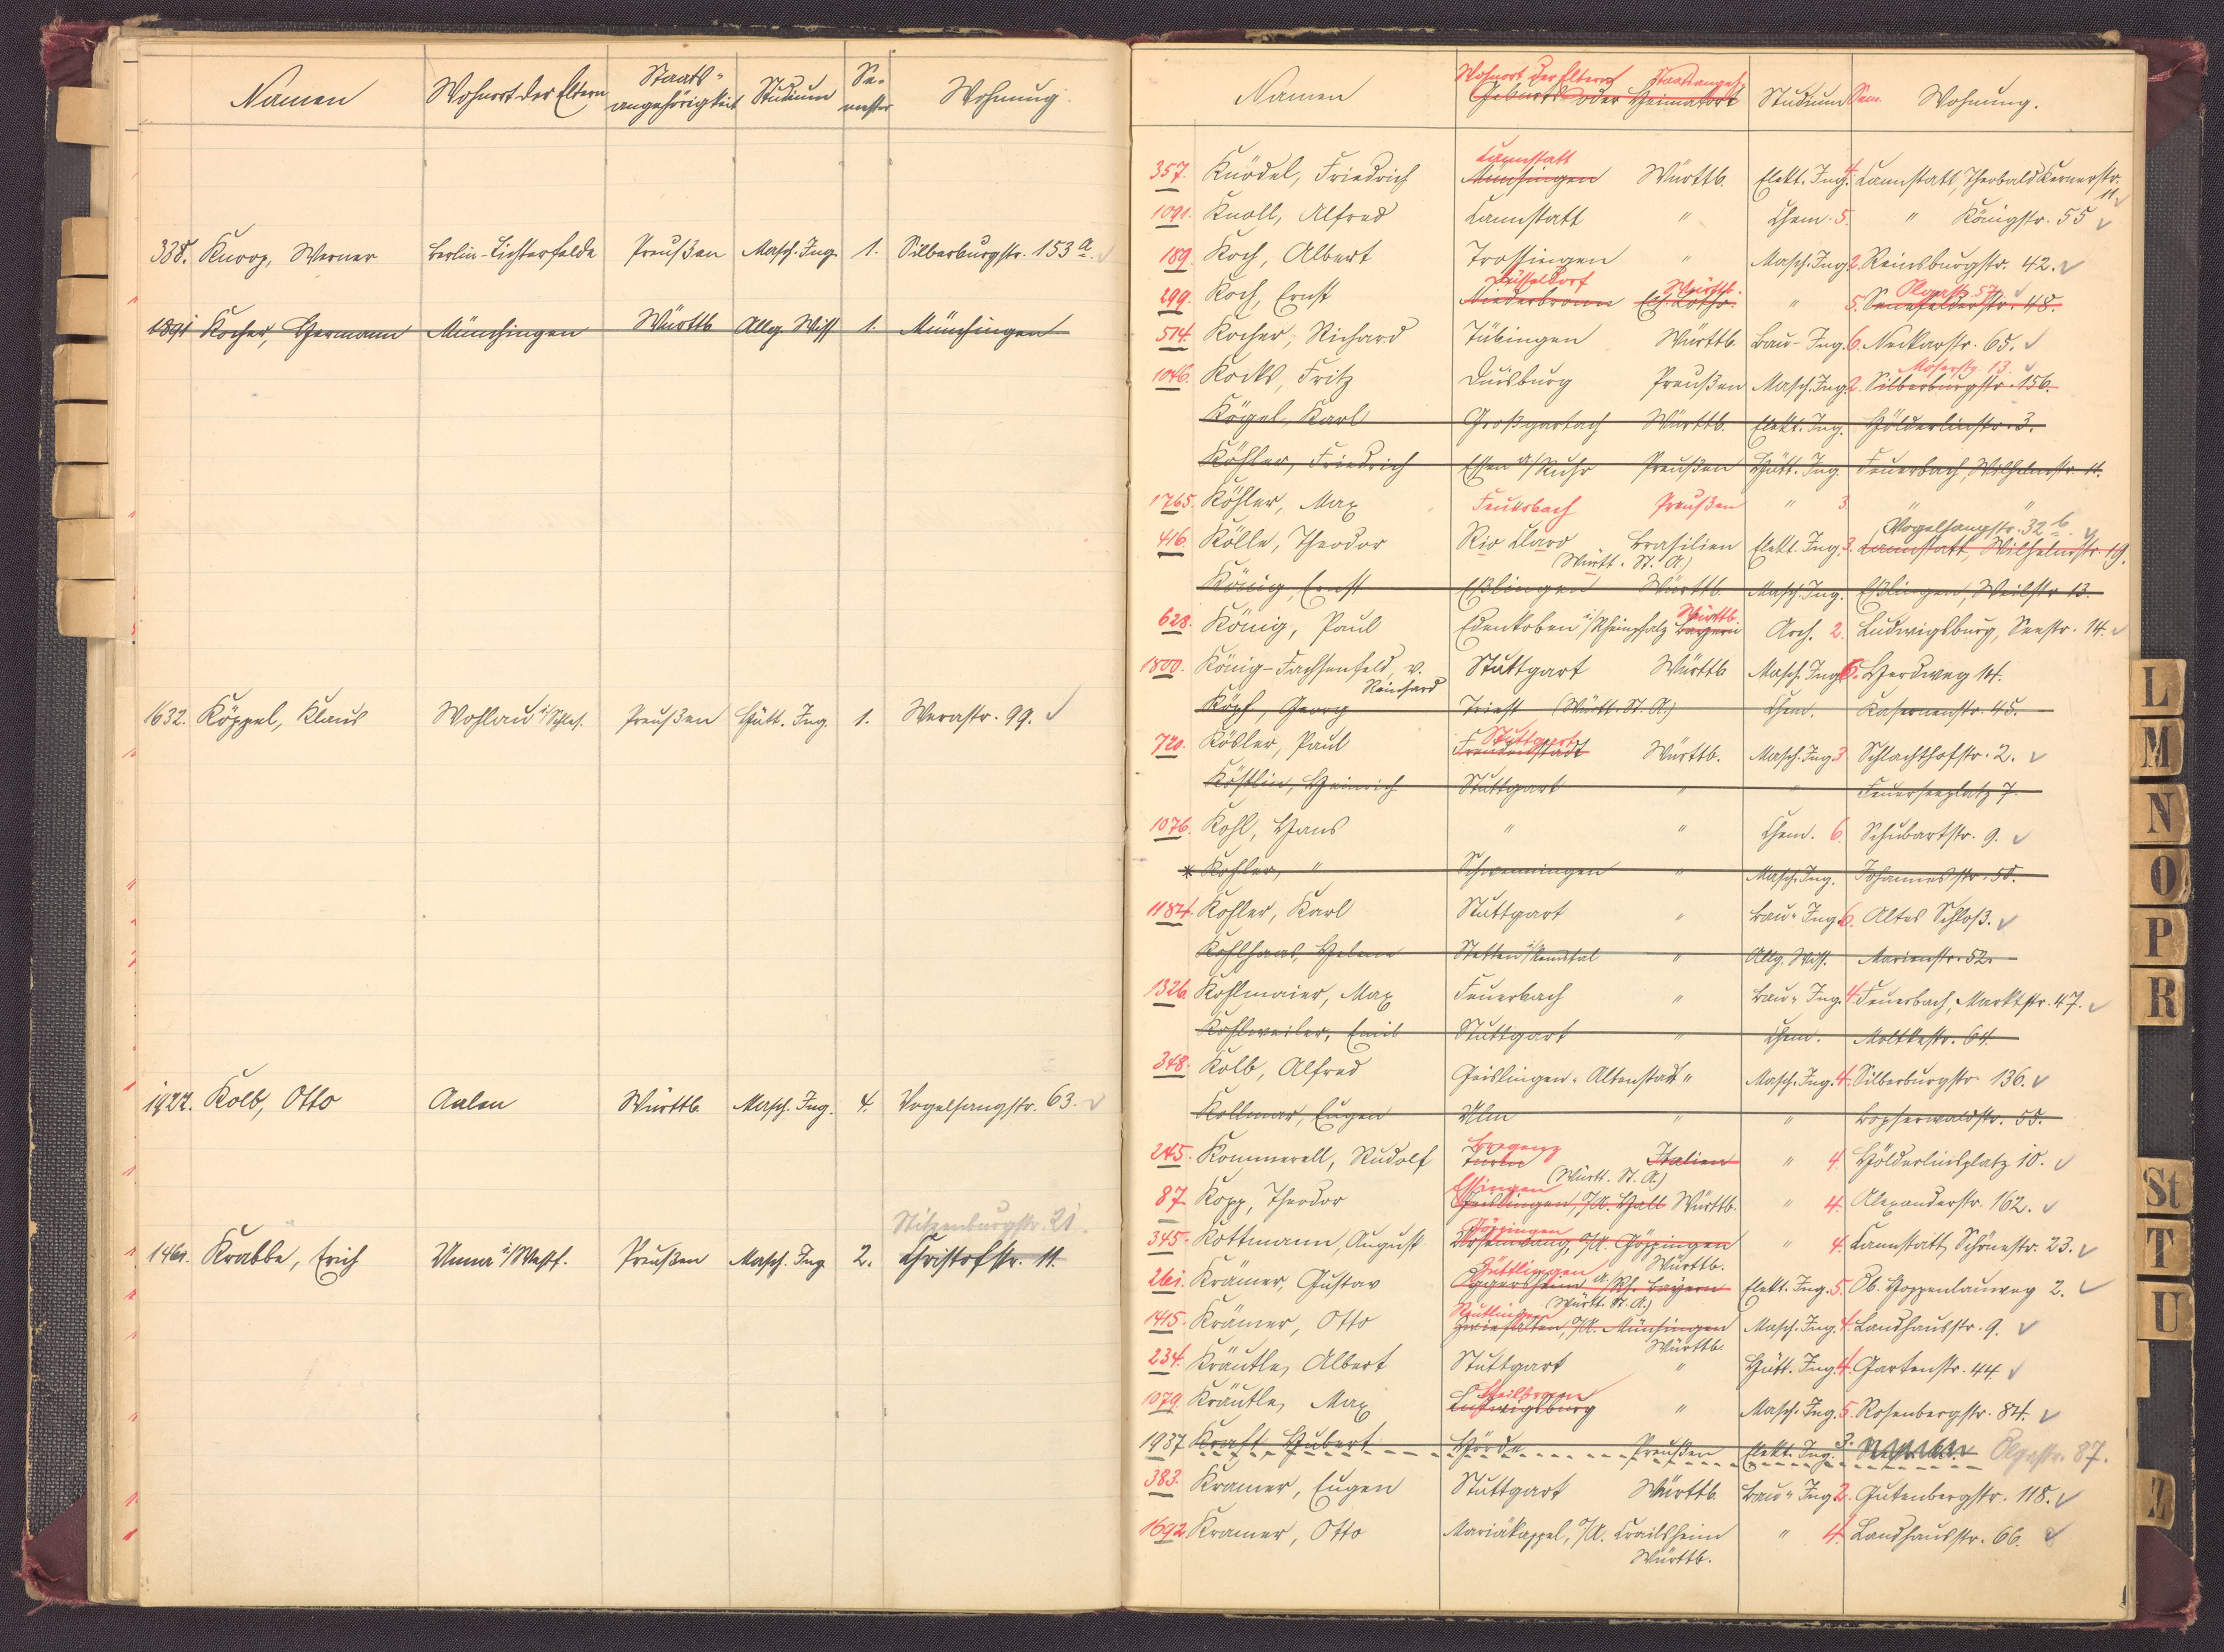 Namen Wohnort der Eltern Staats-angehörigkeit Studium Semester Wohnung.
338. Knoop, Werner Berlin-Lichterfelde Preußen Masch. Ing. 1. Silberburgstr. 153 a.
1891 Kocher, Hermann Münchingen Württb. Allg. Wiss 1. Münchingen
1632. Köppel, Klaus Wohlau i/Schles. Preußen Hütt. Ing. 1. Werastr. 99.
1922. Kolb, Otto Aalen Württb. Masch. Ing. 4. Vogelsangstr. 63.
Stitzenburgstr. 21.
1461. Krabbe, Erich Unna i/Westf. Preußen Masch. Ing. 2. Christofstr. 11.
Wohnort der Eltern Staatsangeh.
Namen Geburts- oder Heimatort Studium Sem. Wohnung.
Cannstatt
357. Knödel, Friedrich Münsingen Württb. Elekt. Ing. 4. Cannstatt, Theobald Kernerstr.
11
1091. Knoll, Alfred Cannstatt " Chem. 5. " Königstr. 55
189. Koch, Albert Trossingen " Masch. Ing. 2. Reinsburgstr. 42.
Düsseldorf Württb. Olgastr. 57
299. Koch, Ernst Niederbronn Els. Lothr. " 5. Senefelderstr. 48.
504. Kocher, Richard Tübingen Württb. Bau-Ing. 6. Neckarstr. 65.
Moserstr. 13.
1046. Kocks, Fritz Duisburg Preußen Masch. Ing. 2. Silberburgstr. 156.
Kögel, Karl Großgartach Württb. Elekt. Ing. Hölderlinstr. 3.
Köhler, Friedrich Essen a/Ruhr Preußen Hütt. Ing. Feuerbach, Wilhelmstr. 11.
1765. Köhler, Max Feuerbach Preußen " 3. " "
Vogelsangstr. 32 b.
416. Kölle, Theodor Rio Claro Brasilien Elekt. Ing. 3. Cannstatt, Wilhelmstr. 19.
(Württ. St. A.)
König, Ernst Eßlingen Württb. Masch. Ing. Eßlingen, Weilstr. 13.
Württb.
628. König, Paul Edenkoben i/Rheinpfalz Bayern Arch. 2. Ludwigsburg, Seestr. 14.
1800. König-Fachsenfeld, v. Stuttgart Württb Masch. Ing. 5. Herdweg 14.
Reinhard
Köpf, Georg Triest (Württ. St. A.) Chem. Kasernenstr. 45.
Stuttgart
720. Kösler, Paul Freudenstadt Württb. Masch. Ing. 3 Schlachthofstr. 2.
Köstlin, Heinrich Stuttgart " " Feuerseeplatz 7.
1076. Kohl, Hans " " Chem. 6. Schubartstr. 9.
* Kohler, " Schwenningen " Masch. Ing. Johannesstr. 55.
1184. Kohler, Karl Stuttgart " Bau-Ing. 6. Altes Schloß.
Kohlhaas, Helene Stetten i/Remstal " Allg. Wiss. Marienstr. 52.
1326. Kohlmaier, Max Feuerbach " Bau-Ing. 4. Feuerbach, Marktstr. 47.
Kohlweiler, Emil Stuttgart " Chem. Moltkestr. 64.
348. Kolb, Alfred Geislingen-Altenstadt " Masch. Ing. 4. Silberburgstr. 136.
Kollmar, Eugen Ulm " " Bopserwaldstr. 55.
Bregenz
245. Kommerell, Rudolf Turin Italien " 4. Hölderlinsplatz 10.
(Württ. St. A.)
Essingen
87 Kopp, Theodor Geislingen, O/A. Hall Württb. " 4. Alexanderstr. 162.
Göppingen
345. Kottmann, August O/A. Göppingen " 4. Cannstatt, Schönestr. 23.
Württb.
261. Krämer, Gustav Oggersheim a/Rh. Bayern Elekt. Ing. 5. Ob. Hoppenlauweg 2.
(Württ. St. A.)
Reutlingen
1415. Krämer, Otto Zwiefalten, O/A. Münsingen Masch. Ing. 4. Landhausstr. 9.
Württb.
234. Kräutle, Albert Stuttgart " Hütt. Ing. 4. Gartenstr. 44
Heilbronn
1079. Kräutle, Max Ludwigsburg " Masch. Ing. 5. Rosenbergstr. 84.
1937 Kraft Hubert Hörde Preußen Elekt. Ing. 3. Olgastr. 87.
383. Kramer, Eugen Stuttgart Württb. Bau-Ing. 2. Gutenbergstr. 118.
1692. Kramer, Otto Mariäkappel, O/A. Crailsheim " 4. Landhausstr. 66.
Württb.
L
M
N
O
P
R
St
T
U
Z